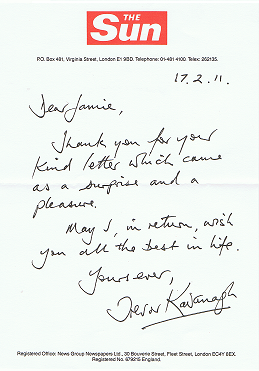 THE
Sun
P.O. Box 481, Virginia Street, London E1 9BD. Telephone: 01-481 4100. Telex: 262135.
17.2.11.
Dear Jamie,
Thank you for your
kind letter which came
as a surprise and a
pleasure.
May I, in return, wish
you all the best in life.
Yours ever,
Trevor Kavanagh
Registered Office: News Group Newspapers Ltd., 30 Bouverie Street, Fleet Street, London EC4Y 8EX.
Registered No. 679215 England.